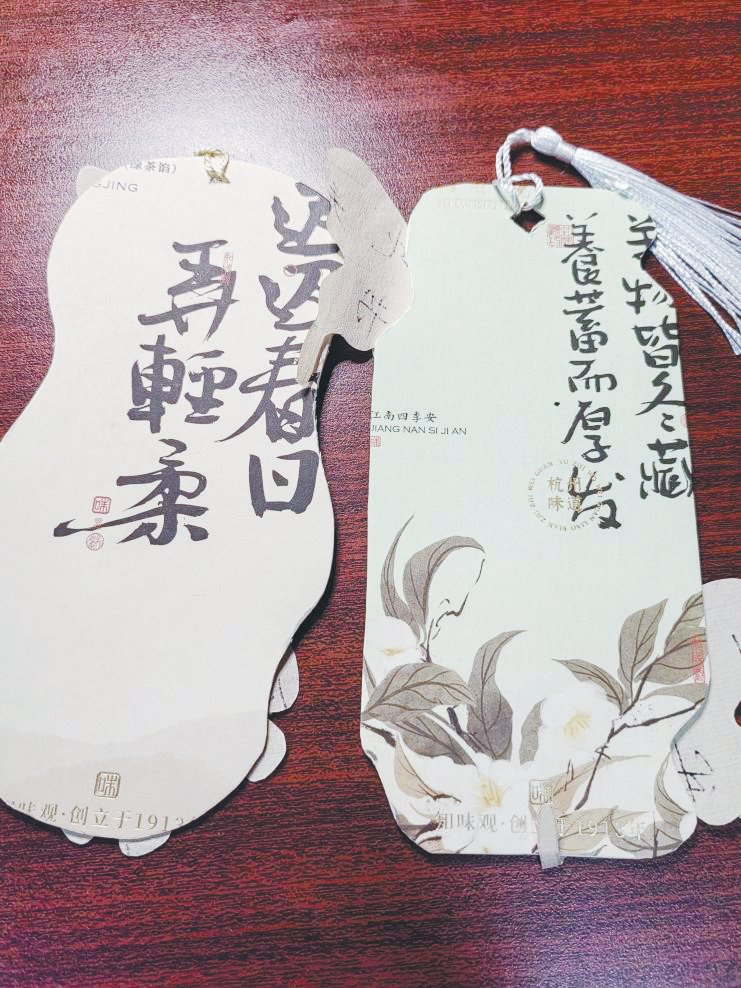 茶馅）
GJING
迟迟春日
弄輕柔
味
味
味观·创立于1913
物皆冬藏
養蓄而厚发
江南四季安
JIANG NAN SI JI AN
杭州
味道
味
知味观·创立于1913年